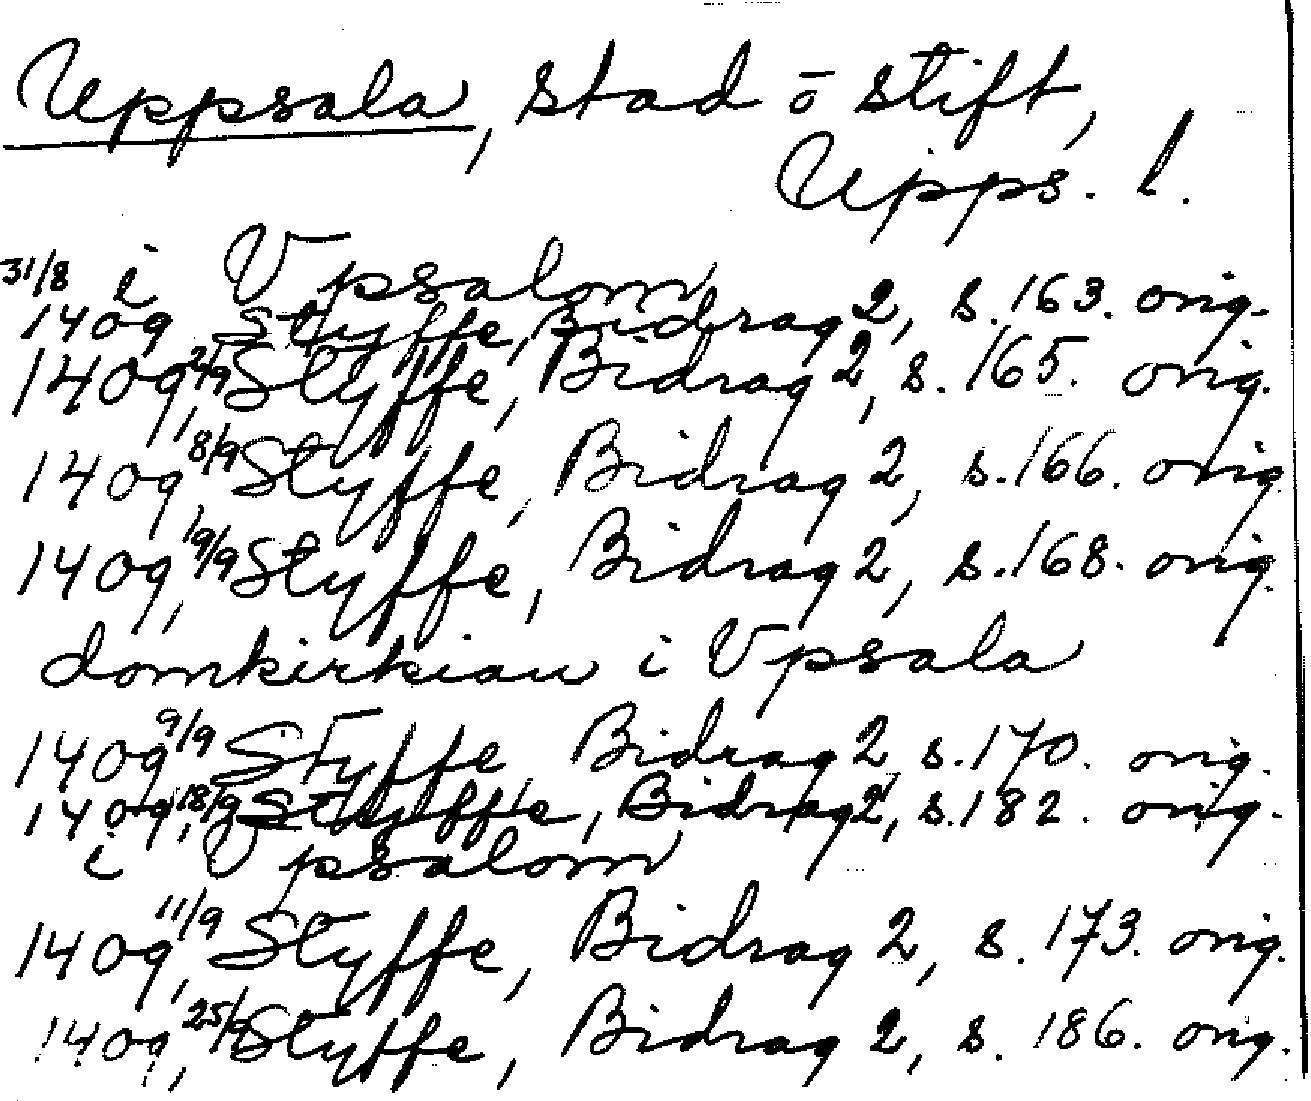 Uppsala, stad o stift,
Upps. l.
i Vpsalom
1409 31/8 Styffe, Bidrag 2, s. 163. orig.
1409, 2/9 Styffe, Bidrag 2, s. 165. orig.
1409, 8/9 Styffe, Bidrag 2, s. 166. orig.
1409, 19/9 Styffe, Bidrag 2, s. 168. orig.
domkirkian i Vpsala
1409 9/9 Styffe, Bidrag 2 s. 170. orig.
1409, 18/9 Styffe, Bidrag 2, s. 182. orig.
i Vpsalom
1409, 11/9 Styffe, Bidrag 2, s. 173. orig.
1409, 25/9 Styffe, Bidrag 2, s. 186. orig.